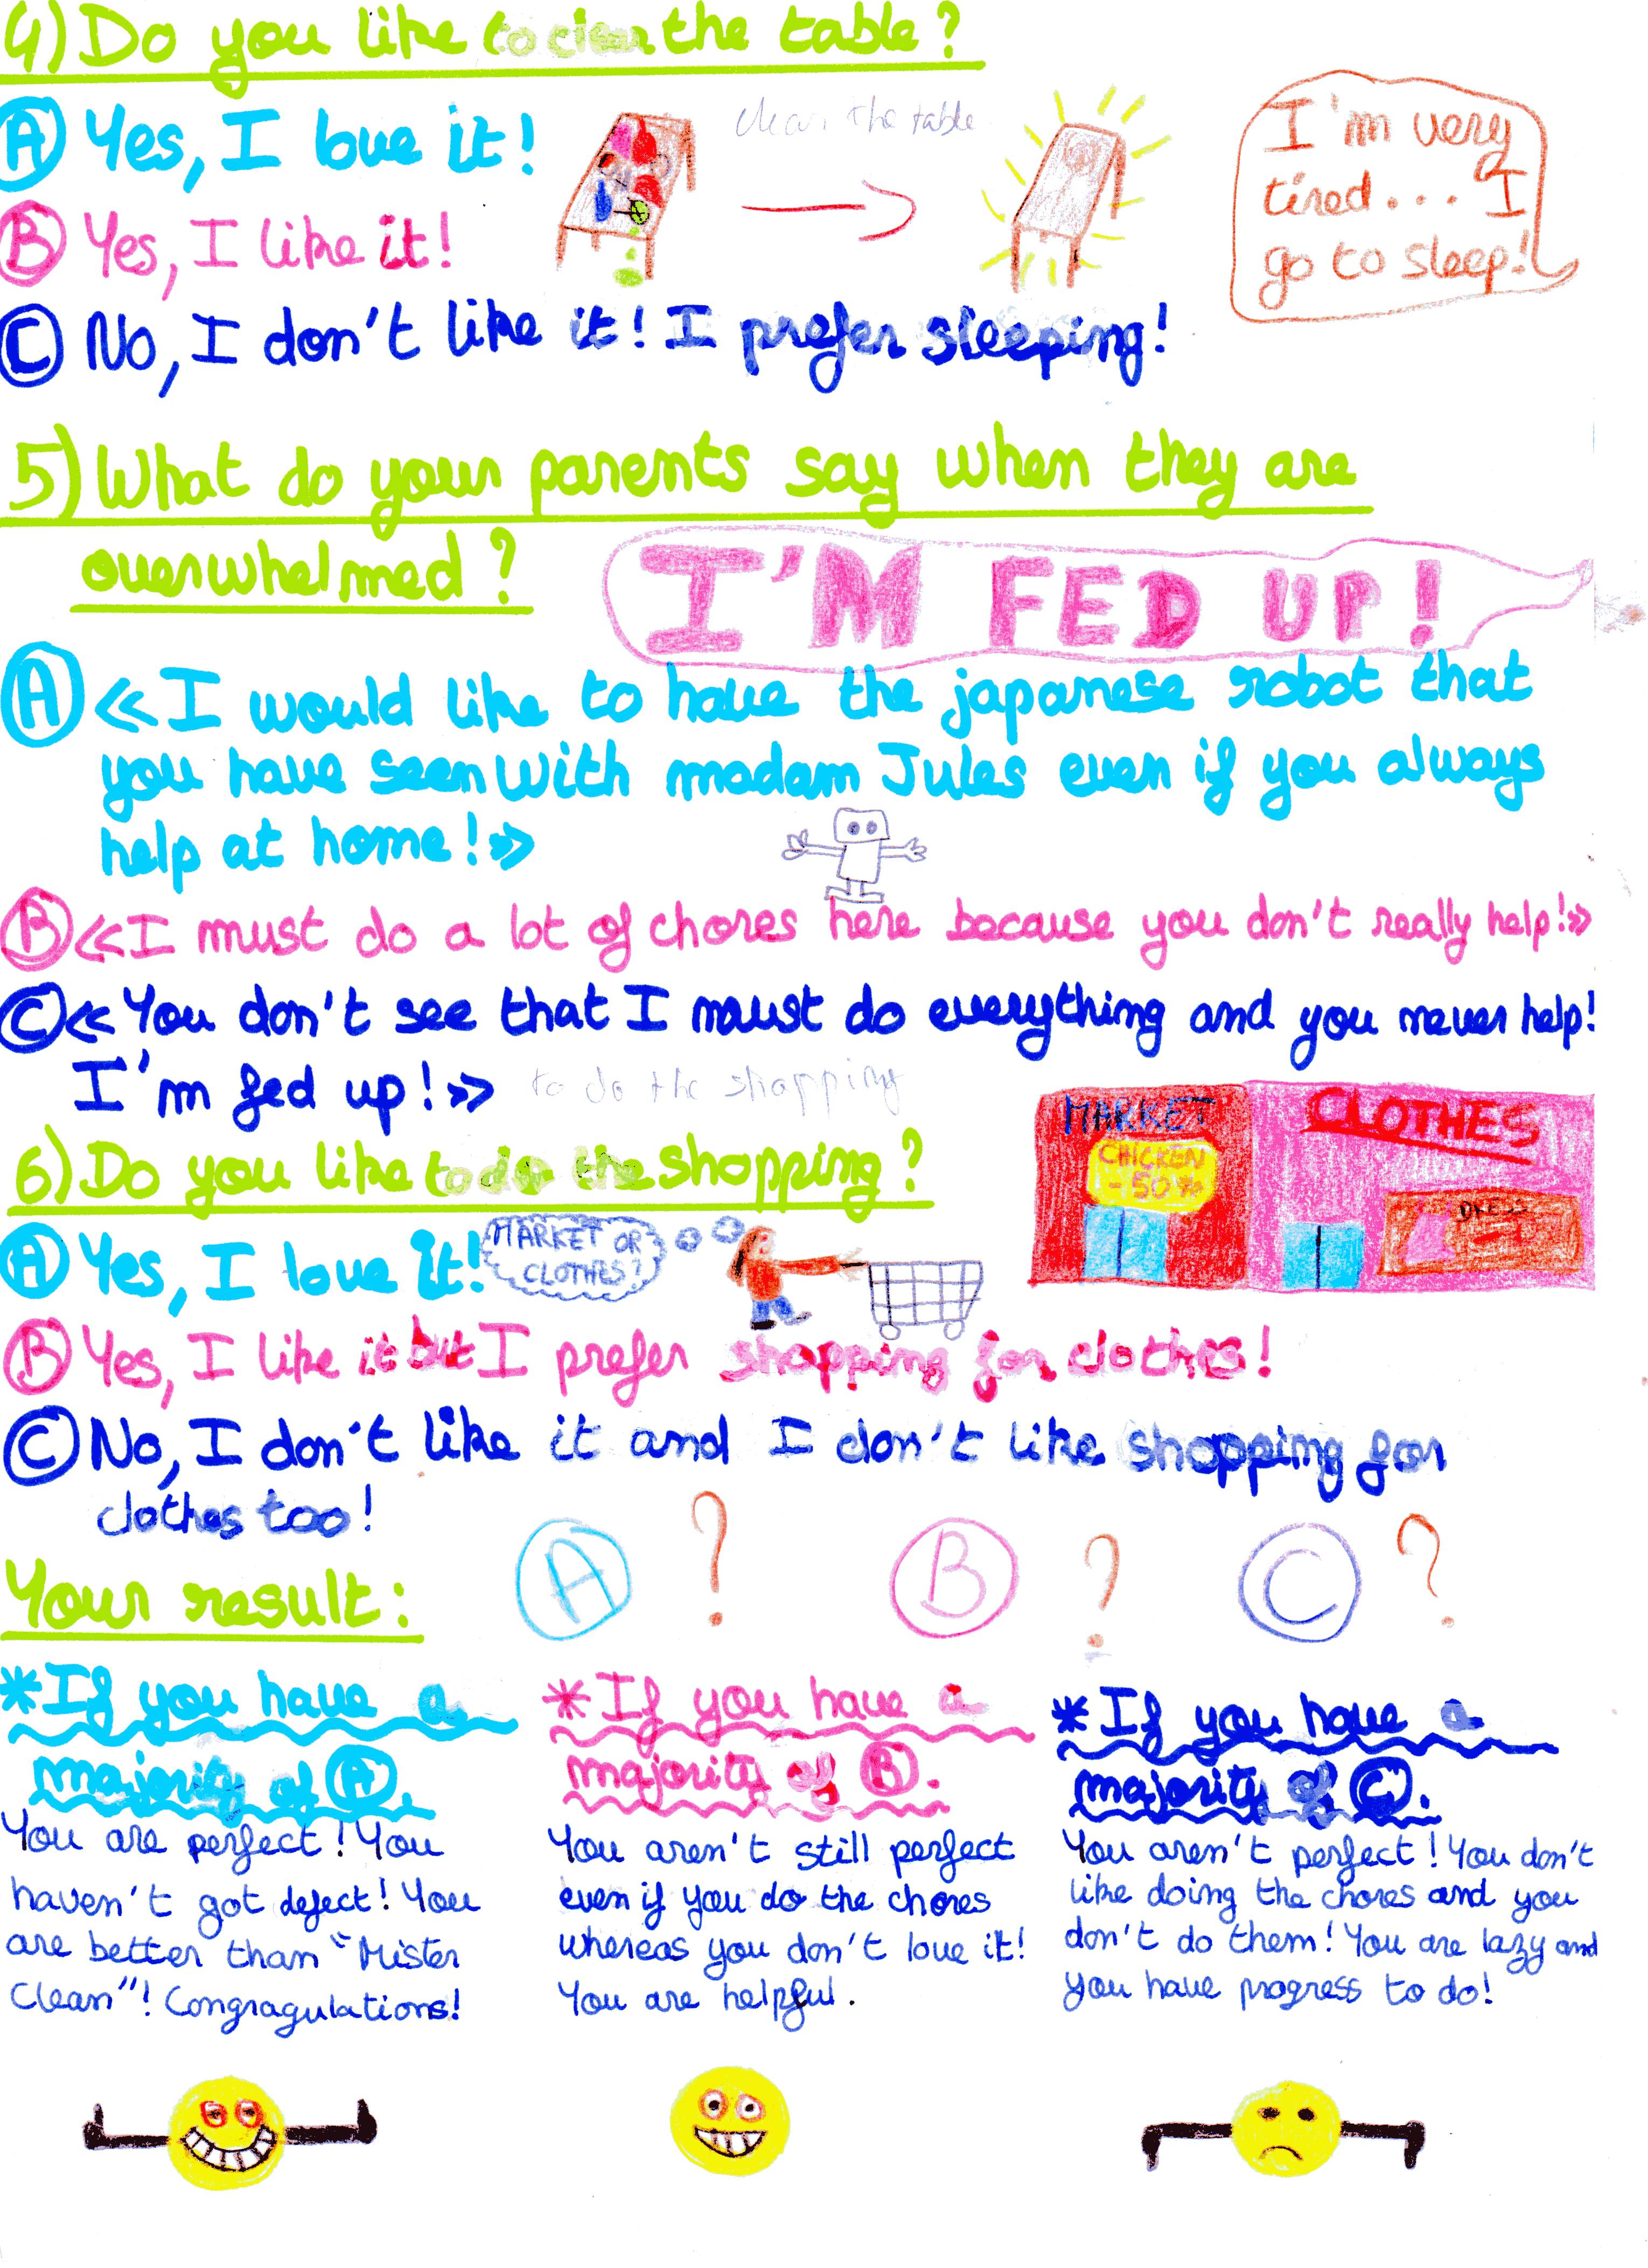 4) Do you like to clear the table?
A Yes, I love it!
clear the table
I'm very
tired... I
go to sleep!
B Yes, I like it!
C No, I don't like it! I prefer sleeping!
5) What do your parents say when they are
overwhelmed?
I'M FED UP!
A «I would like to have the japanese robot that
you have seen with madam Jules even if you always
help at home!»
B «I must do a lot of chores here because you don't really help!»
C «You don't see that I must do everything and you never help!
I'm fed up!»
to do the shopping
MARKET
CHICKEN
-50%
CLOTHES
DRESS
6) Do you like to do the shopping?
A Yes, I love it!
MARKET OR
CLOTHES?
B Yes, I like it but I prefer shopping for clothes!
C No, I don't like it and I don't like shopping for
clothes too!
Your result:
A ? B ? C ?
*If you have a
majority of A.
You are perfect! You
haven't got defect! You
are better than "Mister
Clean"! Congragulations!
*If you have a
majority of B.
You aren't still perfect
even if you do the chores
whereas you don't love it!
You are helpful.
*If you have a
majority of C.
You aren't perfect! You don't
like doing the chores and you
don't do them! You are lazy and
you have progress to do!